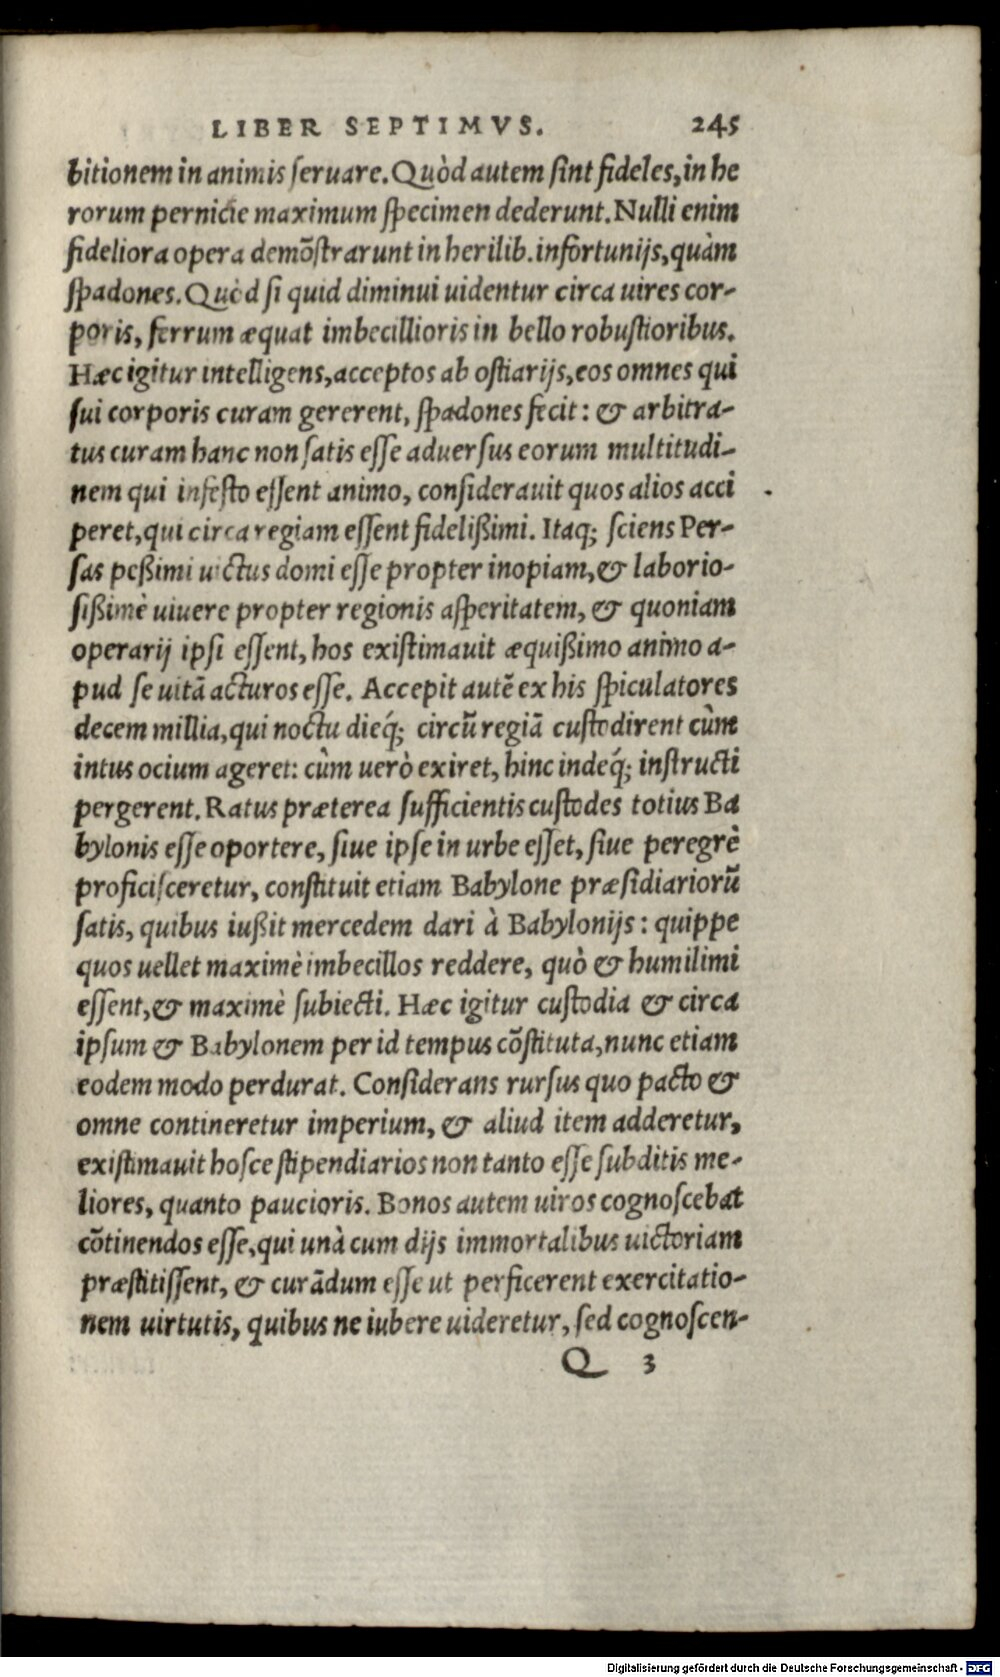 LIBER SEPTIMVS. 245
bitionem in animis ſeruare. Quòd autem ſint fideles, in he
rorum pernicie maximum ſpecimen dederunt. Nulli enim
fideliora opera demõſtrarunt in herilib. infortunijs, quàm
ſpadones. Quòd ſi quid diminui uidentur circa uires cor-
poris, ferrum æquat imbecillioris in bello robuſtioribus.
Hæc igitur intelligens, acceptos ab oſtiarijs, eos omnes qui
ſui corporis curam gererent, ſpadones fecit: & arbitra-
tus curam hanc non ſatis eſſe aduerſus eorum multitudi-
nem qui infeſto eſſent animo, conſiderauit quos alios acci
peret, qui circa regiam eſſent fidelißimi. Itaq; ſciens Per-
ſas peßimi uictus domi eſſe propter inopiam, & laborio-
ſißimè uiuere propter regionis aſperitatem, & quoniam
operarij ipſi eſſent, hos exiſtimauit æquißimo animo a-
pud ſe uitã acturos eſſe. Accepit autẽ ex his ſpiculatores
decem millia, qui noctu dieq́; circũ regiã cuſtodirent cùm
intus ocium ageret: cùm uerò exiret, hinc indeq́; inſtructi
pergerent. Ratus præterea ſufficientis cuſtodes totius Ba
bylonis eſſe oportere, ſiue ipſe in urbe eſſet, ſiue peregrè
proficiſceretur, conſtituit etiam Babylone præſidiariorũ
ſatis, quibus iußit mercedem dari à Babylonijs: quippe
quos uellet maximè imbecillos reddere, quò & humilimi
eſſent, & maximè ſubiecti. Hæc igitur cuſtodia & circa
ipſum & Babylonem per id tempus cõſtituta, nunc etiam
eodem modo perdurat. Conſiderans rurſus quo pacto &
omne contineretur imperium, & aliud item adderetur,
exiſtimauit hoſce ſtipendiarios non tanto eſſe ſubditis me-
liores, quanto paucioris. Bonos autem uiros cognoſcebat
cõtinendos eſſe, qui unà cum dijs immortalibus uictoriam
præſtitiſſent, & curãdum eſſe ut perficerent exercitatio-
nem uirtutis, quibus ne iubere uideretur, ſed cognoſcen-
Q 3
Digitalisierung gefördert durch die Deutsche Forschungsgemeinschaft - DFG